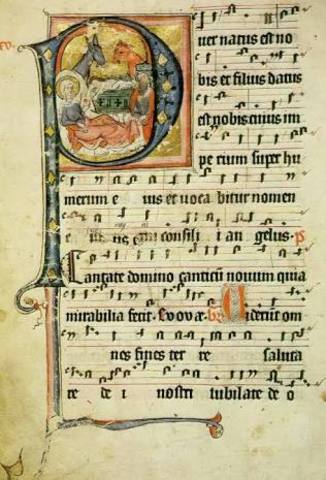 Puer natus est no
bis et filius datus
est nobis cuius im
pe rium super hu
merum e ius et voca bitur nomen
e ius consili i an gelus. ps
Cantate domino canticum novum quia
mirabilia fecit. Evovae. Viderut om
nes fines ter re saluta
re de i nostri iubilate de o